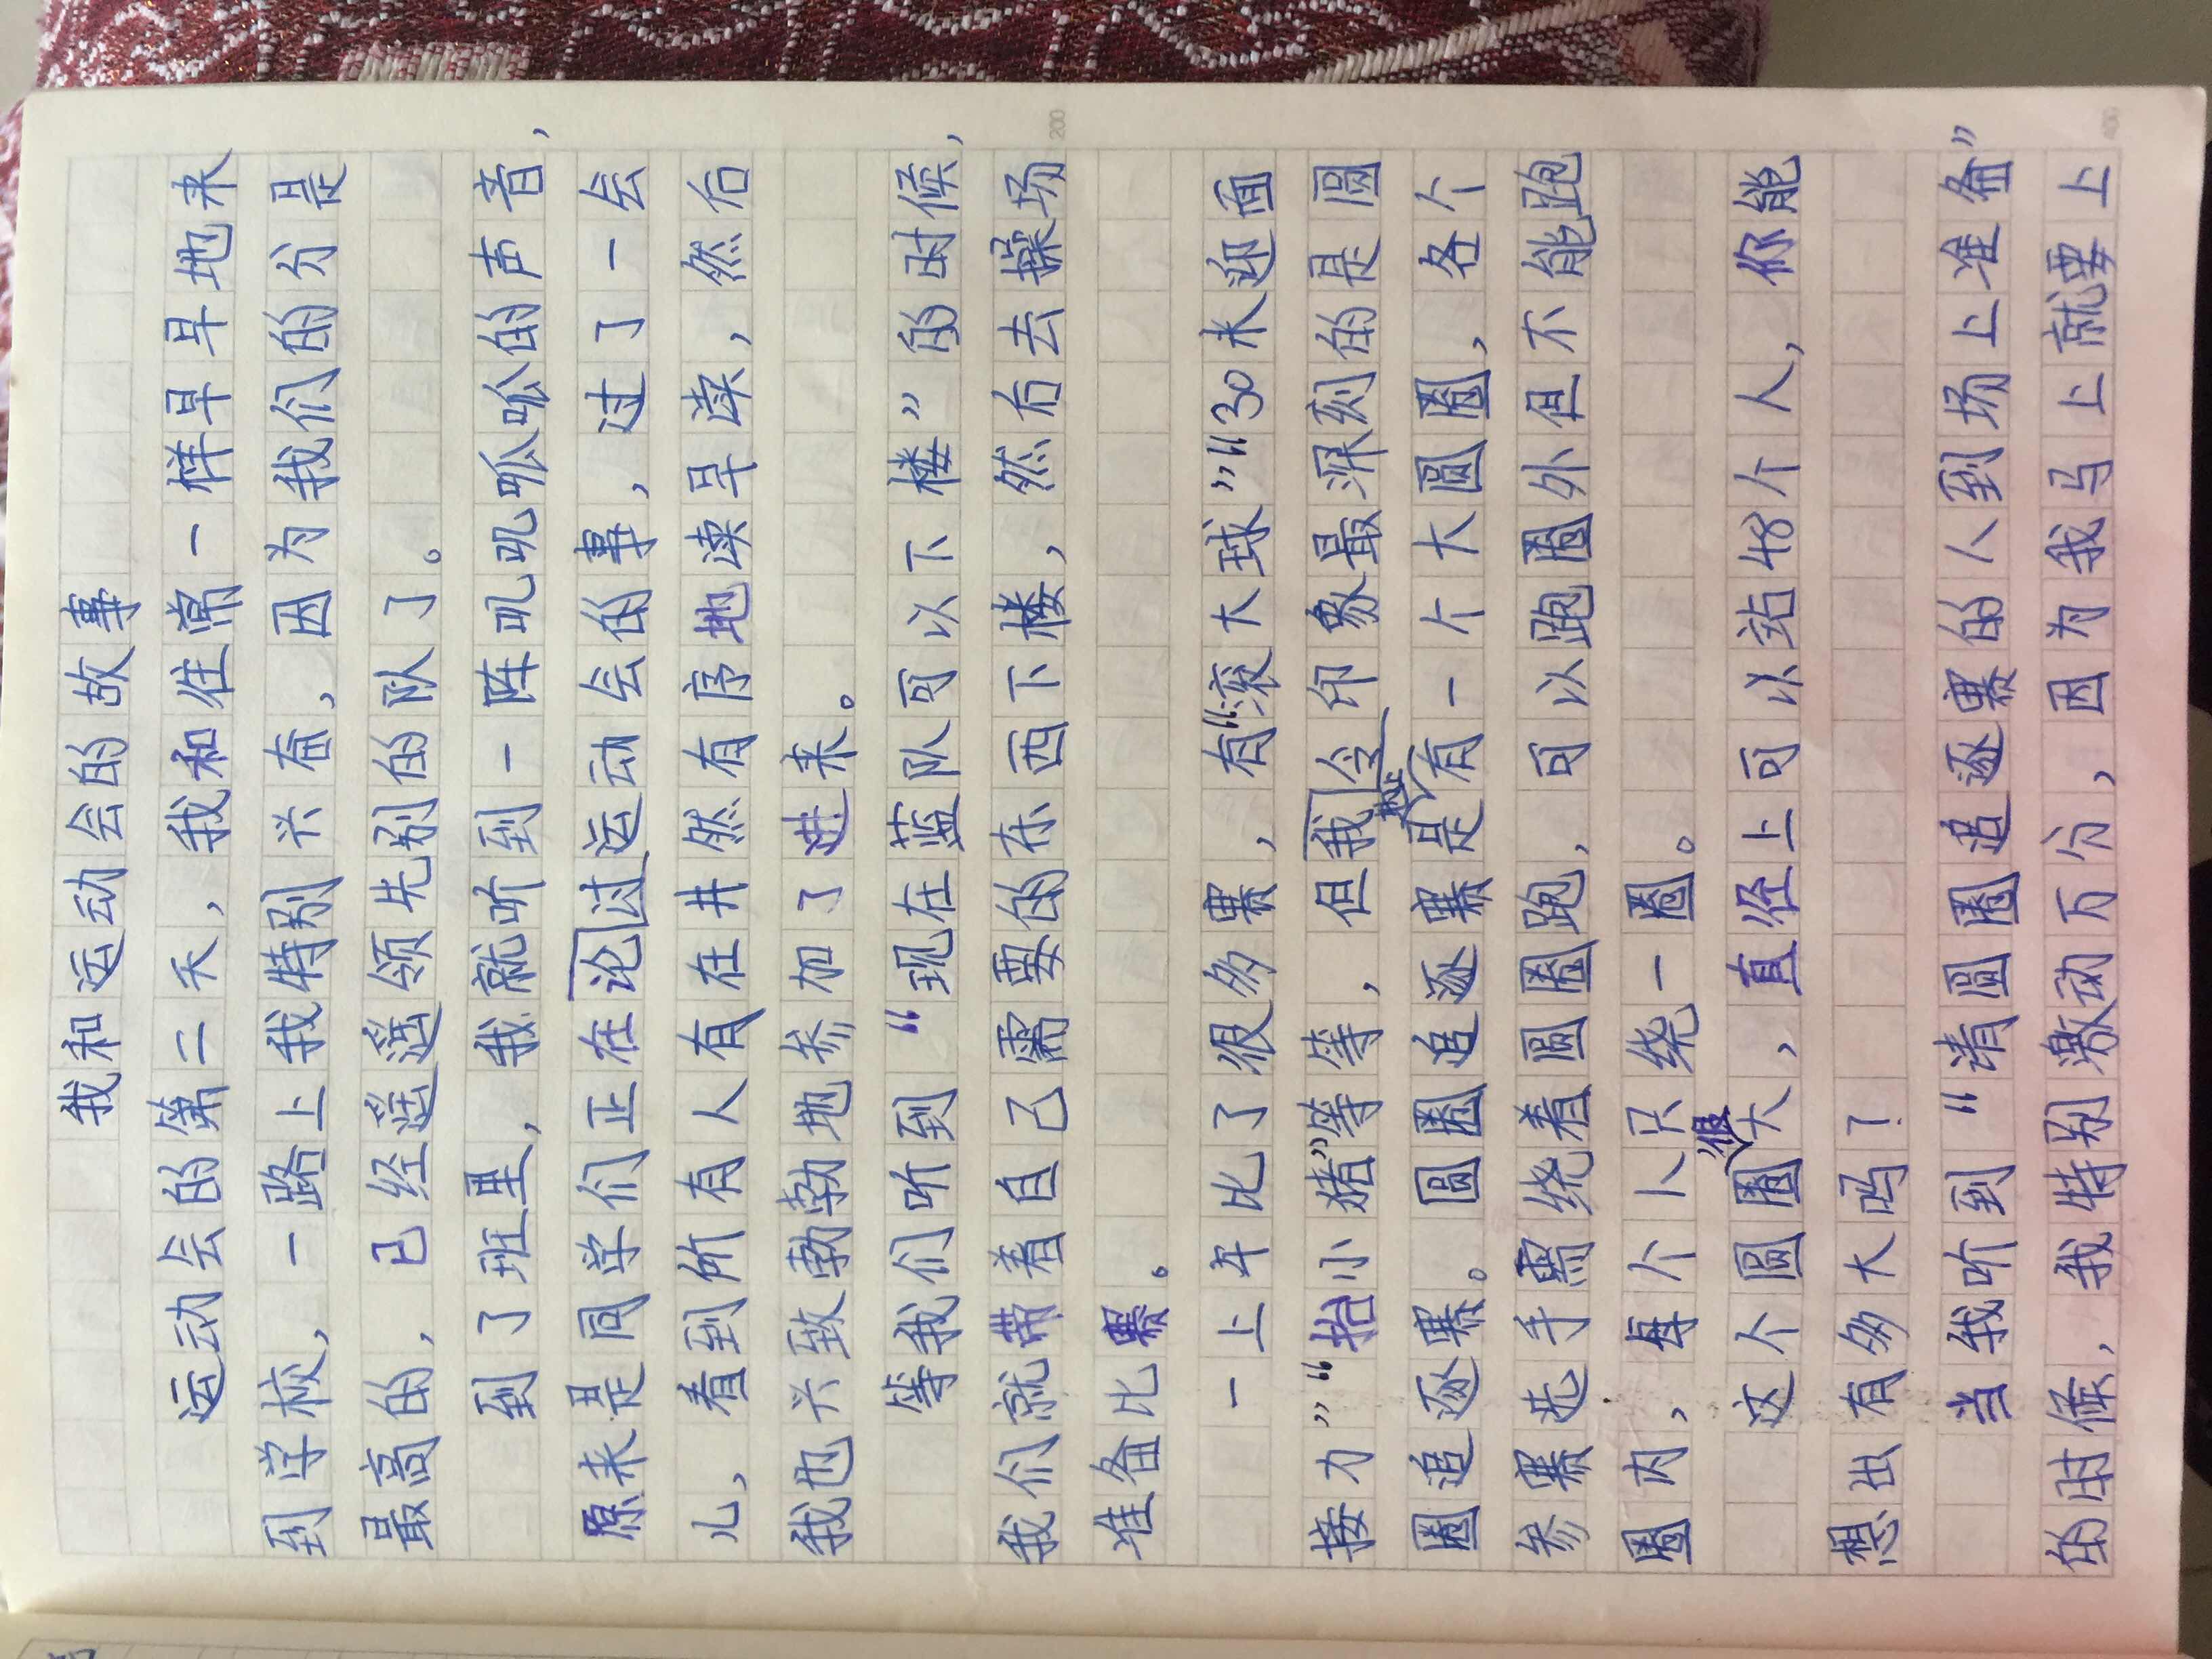 我和运动会的故事
运动会的第二天，我和往常一样早早地来
到学校，一路上我特别兴奋，因为我们的分是
最高的，已经遥遥领先别的队了。
到了班里，我就听到一阵叽叽呱呱的声音，
原来是同学们正在论过运动会的事，过了一会
儿，看到所有人有在井然有序地读早读，然后
我也兴致勃勃地参加了进来。
等我们听到“现在蓝队可以下楼”的时候，
我们就带着自己需要的东西下楼，然后去操场
准备比赛。
200
一上午比了很多赛，有“滚大球”“30米迎面
接力”“抬小猪”等等，但我令印象最深刻的是圆
圈追逐赛。圆圈追逐赛是有一个大圆圈，各个
参赛选手需绕着圆圈跑，可以跑圈外但不能跑
圈内，每个人只绕一圈。
这个圆圈很大，直径上可以站48个人，你能
想出有多大吗？
当我听到“请圆圈追逐赛的人到场上准备”
的时候，我特别激动万分，因为我马上就要上